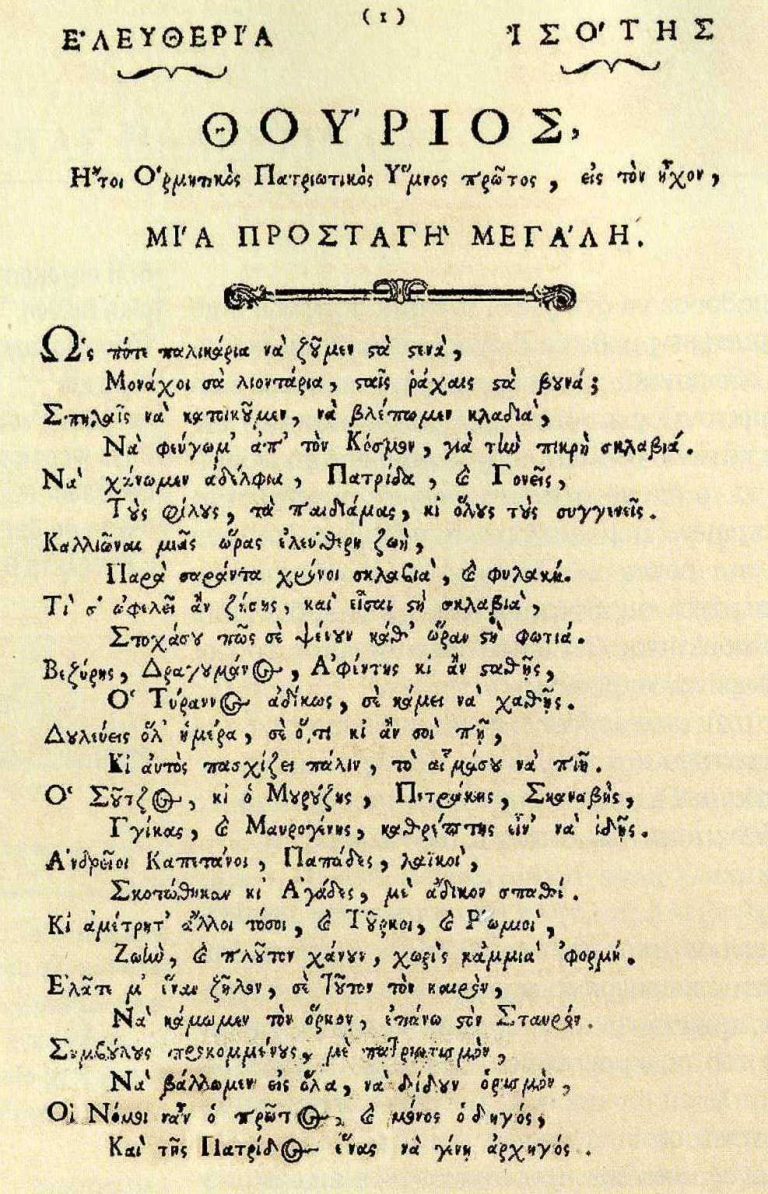 (1)
Ε'ΛΕΥΘΕΡΙ'Α
'ΙΣΟ'ΤΗΣ
ΘΟΥ'ΡΙΟΣ,
Ἤτοι Ὁρμητικὸς Πατριωτικὸς Ὕμνος πρῶτος, εἰς τὸν ἦχον,
ΜΙ'Α ΠΡΟΣΤΑΓΗ' ΜΕΓΑ'ΛΗ.
Ὡς πότε παλικάρια νὰ ζȣ͂μεν ϛὰ ϛενὰ,
Μονάχοι σὰ λιοντάρια, ϛαῖς ῥάχαις ϛὰ βȣνά;
Σπηλαῖς νὰ κατοικȣ͂μεν, νὰ βλέπωμεν κλαδιὰ,
Νὰ φεύγωμ' ἀπ' τὸν Κόσμον, γιὰ τὴν πικρὴ σκλαβιά.
Νὰ χάνωμεν ἀδέλφια, Πατρίδα, ϗ Γονεῖς,
Τȣ̀ς φίλȣς, τὰ παιδιάμας, κι ὅλȣς τȣ̀ς συγγενεῖς.
Καλλιῶναι μιᾶς ὥρας ἐλεύθερη ζωὴ,
Παρὰ σαράντα χρόνοι σκλαβιὰ, ϗ φυλακή.
Τὶ σ' ὠφελεῖ ἂν ζήσης, καὶ εἶσαι ϛὴ σκλαβιὰ,
Στοχάσȣ πῶς σὲ ψένȣν καθ' ὥραν ϛὴ φωτιά.
Βεζύρης, Δραγȣμάνος, Ἀφέντης κι ἂν ϛαθῇς,
Ὁ Τύραννος ἀδίκως, σὲ κάμει νὰ χαθῇς.
Δȣλεύεις ὅλ' ἡμέρα, σὲ ὅ,τι κι ἂν σοὶ πῇ,
Κι αὐτὸς πασχίζει πάλιν, τὸ αἷμάσȣ νὰ πιῇ.
Ὁ Σȣ͂τζος, κι ὁ Μȣρȣ́ζης, Πετράκης, Σκαναβῆς,
Γγίκας, ϗ Μαυρογένης, καθρέπτης εἶν' νὰ ἰδῇς.
Ἀνδρεῖοι Καπετάνοι, Παπάδες, λαϊκοὶ,
Σκοτώθηκαν κι Ἀγάδες, μὲ ἄδικον σπαθί.
Κι ἀμέτρητ' ἄλλοι τόσοι, ϗ Τȣ͂ρκοι, ϗ Ῥωμιοὶ,
Ζωὴν, ϗ πλȣ͂τον χάνȣν, χωρὶς κἀμμιὰ 'φορμή.
Ἐλᾶτε μ' ἕναν ζῆλον, σὲ τȣ͂τον τὸν καιρὸν,
Νὰ κάμωμεν τὸν ὅρκον, ἐπάνω ϛὸν Σταυρόν.
Συμβȣ́λȣς προκομμένȣς, μὲ πατριωτισμὸν,
Νὰ βάλλωμεν εἰς ὅλα, νὰ δίδȣν ὁρισμὸν,
Οἱ Νόμοι νἆν' ὁ πρῶτος, ϗ μόνος ὁδηγὸς,
Καὶ τῆς Πατρίδος ἕνας νὰ γένη ἀρχηγός.